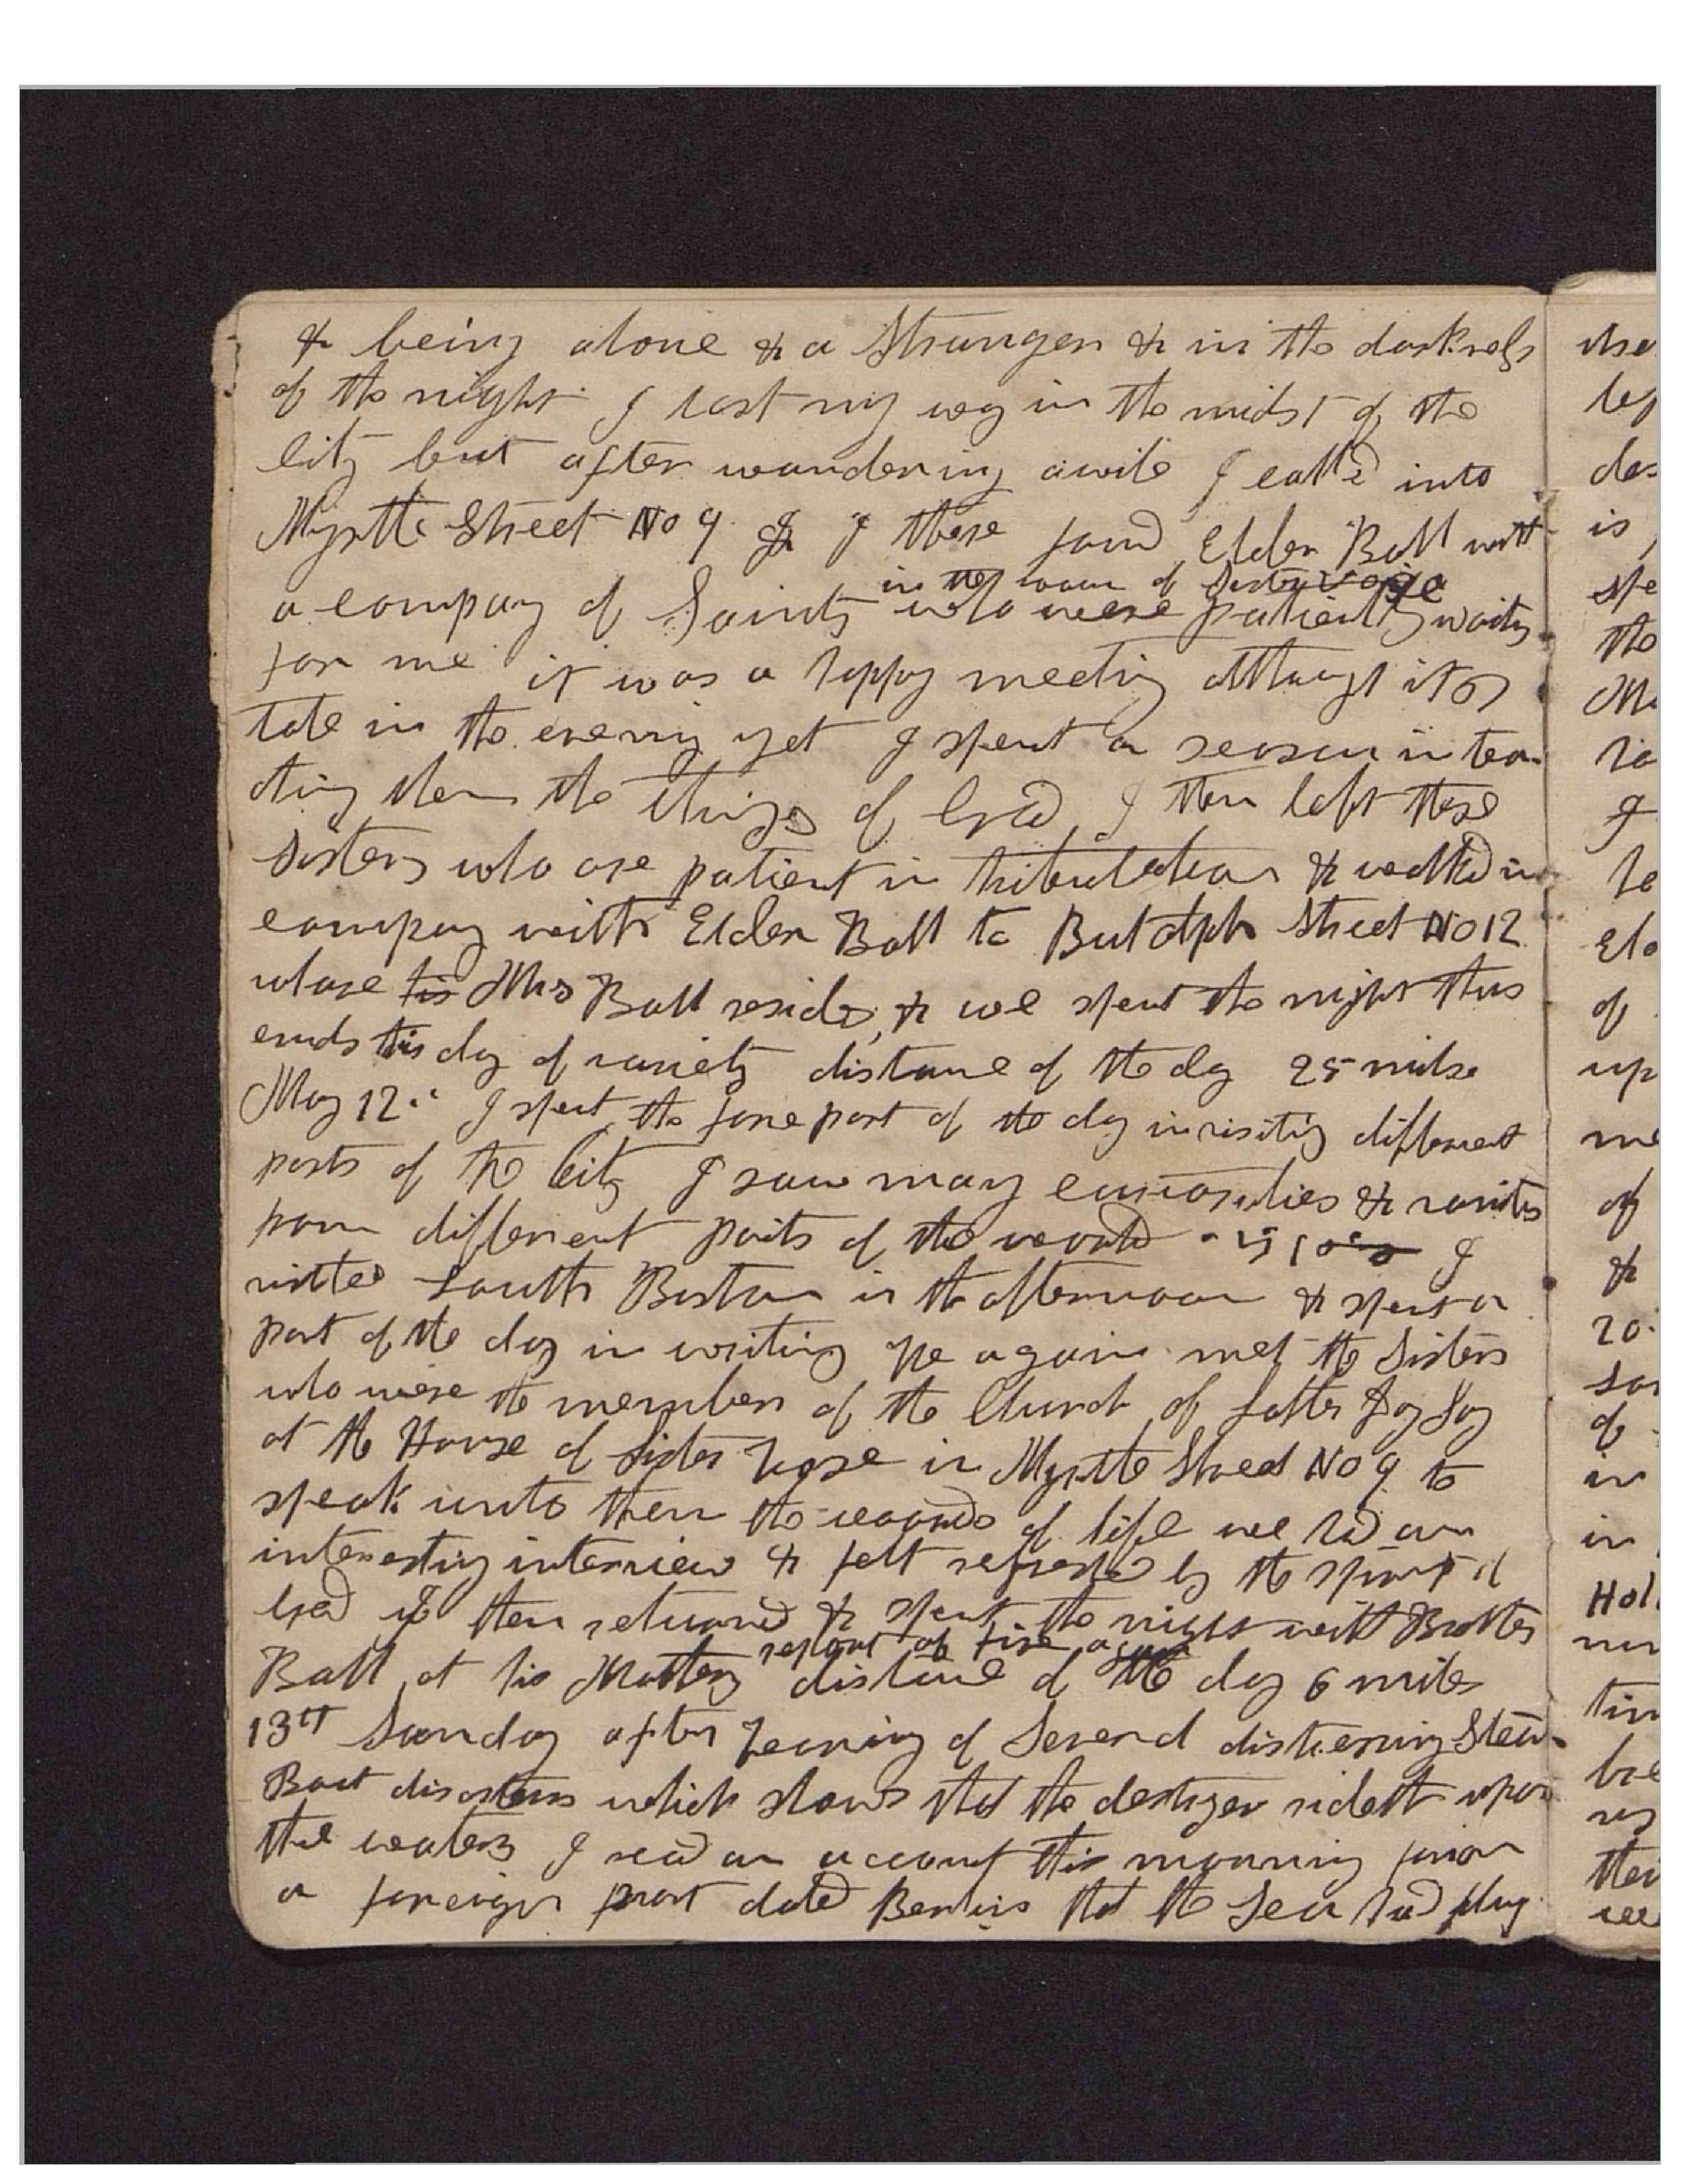 & being alone & a Stranger & in the darkness
of the night I lost my way in the midst of the
City but after wandering awile I calld into
Myrtle Street No 9 & I there found Elder Ball with
in the room of Sister Voase
a company of Saints who were patiently waiting
for me it was a happy meeting although it
late in the evening yet I spent a season in tea-
ching them the things of God I then left these
Sisters who are patient in tribulation & walked in
company with Elder Ball to Butolph Street No 12
whare his Mrs Ball resides, & we spent the night thus
ends this day of variety distance of the day 25 miles
May 12th I spent the fore part of the day in visiting different
parts of the City I saw many curiosities & rarities
from different parts of the world I
visited South Boston in the afternoon & spent a
part of the day in writing we again met the Sisters
who were the members of the Church of Latter Day Say
at the House of Sister Voase in Myrtle Street No 9 to
speak unto them the words of life we had an
interesting interview & felt refreshed by the spirit of
God I then returned & spent the night with Brother
report of fire
Ball at his Mothers distance of the day 6 miles
13th Sunday after hearing of Several distressing Steam
Boat disasters which shows that the destroyer rideth upon
the waters I read an account this morning from
a foreign port dated Berlin that the Sea had plug